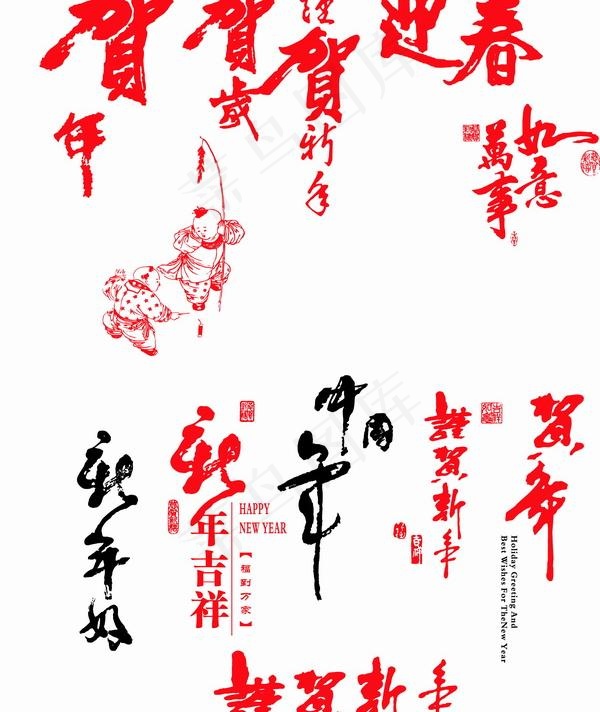 賀年
賀歲
謹賀新年
迎春
萬事如意
新年好
新年吉祥
HAPPY
NEW YEAR
【福到万家】
中國年
謹賀新年
賀年
Holiday Greeting And
Best Wishes For TheNew Year
謹賀新年